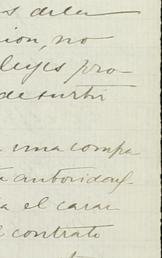 s de la
sion, no
leyes pro-
de surtir
a una compa
autoridad
a el carac
contrato